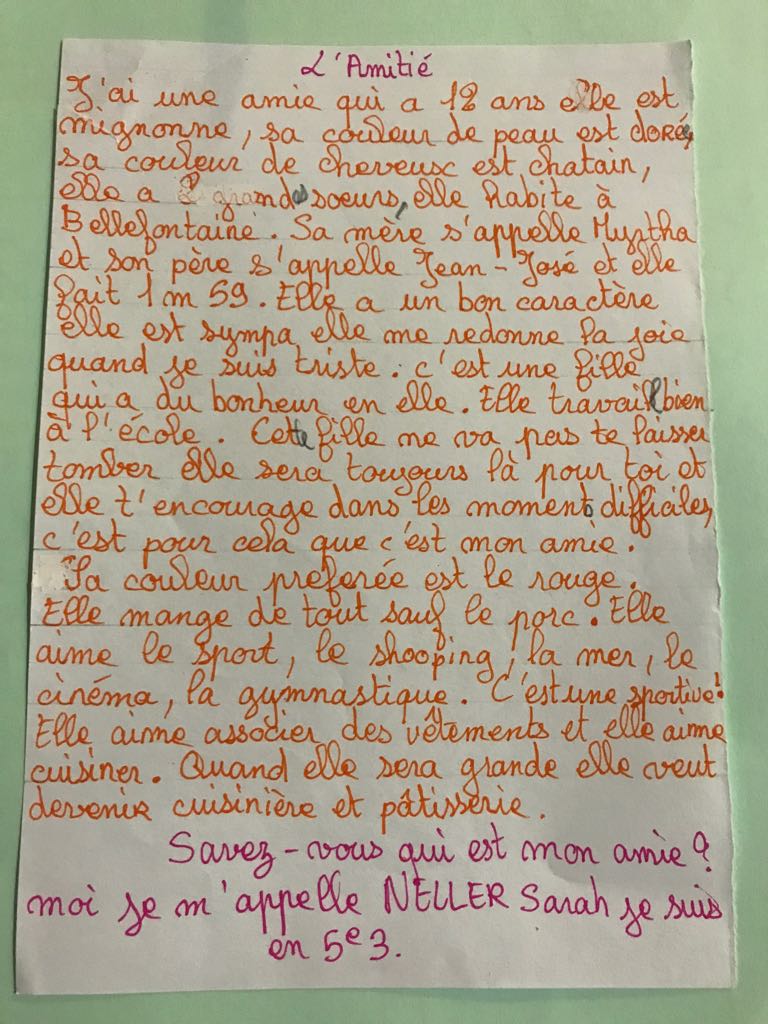 L'Amitié
J'ai une amie qui a 12 ans elle est
mignonne, sa couleur de peau est doré,
sa couleur de cheveux est chatain,
elle a 2 grandes soeurs, elle habite à
Bellefontaine. Sa mère s'appelle Myrtha
et son père s'appelle Jean-José et elle
fait 1m59. Elle a un bon caractère
elle est sympa elle me redonne la joie
quand je suis triste. c'est une fille
qui a du bonheur en elle. Elle travail bien
à l'école. Cette fille ne va pas te laisser
tomber elle sera toujours là pour toi et
elle t'encourage dans les moments difficiles,
c'est pour cela que c'est mon amie.
Sa couleur preferée est le rouge.
Elle mange de tout sauf le porc. Elle
aime le sport, le shooping, la mer, le
cinéma, la gymnastique. C'est une sportive!
Elle aime associer des vêtements et elle aime
cuisiner. Quand elle sera grande elle veut
devenir cuisinière et pâtisserie.
Savez-vous qui est mon amie?
moi je m'appelle NELLER Sarah je suis
en 5e3.